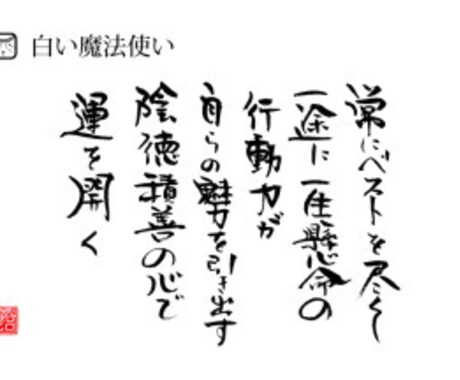 白い魔法使い
常にベストを尽くし
一途に一生懸命の
行動力が
自らの魅力を引き出す
陰徳積善の心で
運を開く